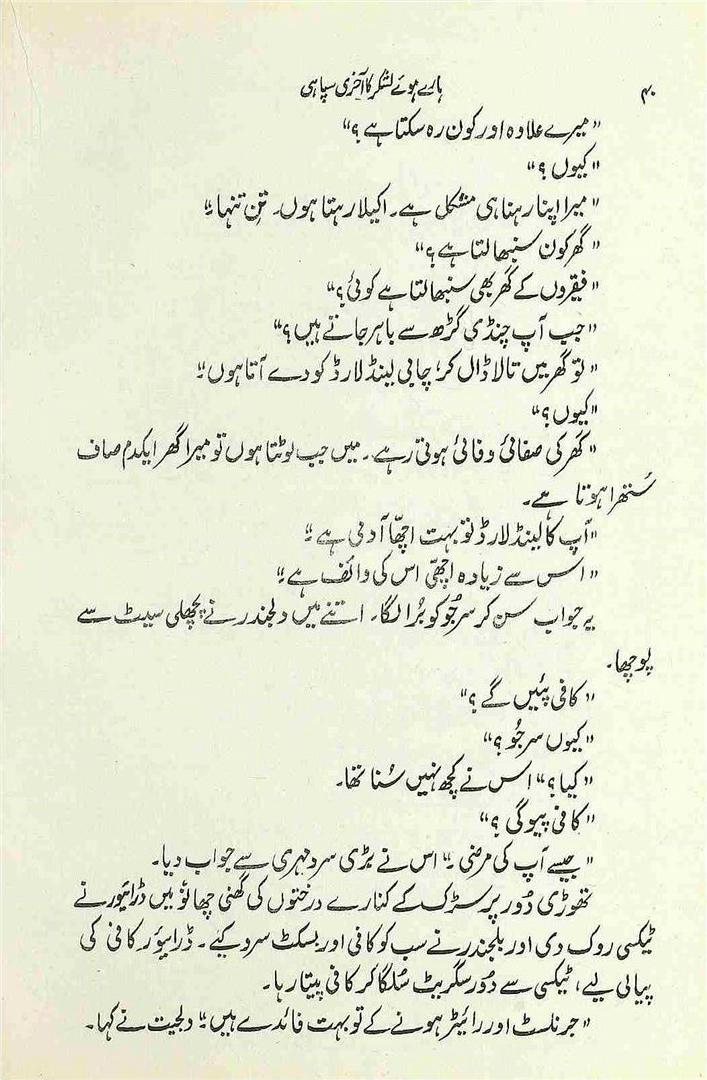 ۴۰ ہارے ہوئے لشکر کا آخری سپاہی
"میرے علاوہ اور کون رہ سکتا ہے؟"
"کیوں؟"
"میرا اپنا رہنا ہی مشکل ہے۔ اکیلا رہتا ہوں۔ تنِ تنہا۔"
"گھر کون سنبھالتا ہے؟"
"فقیروں کے گھر بھی سنبھالتا ہے کوئی؟"
"جب آپ چنڈی گڑھ سے باہر جاتے ہیں؟"
"تو گھر میں تالا ڈال کر، چابی لینڈ لارڈ کو دے آتا ہوں۔"
"کیوں؟"
"گھر کی صفائی وفائی ہوتی رہے۔ میں جب لوٹتا ہوں تو میرا گھر ایکدم صاف
سُتھرا ہوتا ہے۔
"آپ کا لینڈ لارڈ تو بہت اچھّا آدمی ہے۔"
"اس سے زیادہ اچھّی اس کی وائف ہے۔"
یہ جواب سن کر سرجُو کو بُرا لگا۔ اتنے میں دلجندر نے پچھلی سیٹ سے
پوچھا۔
"کافی پئیں گے؟"
"کیوں سرجُو؟"
"کیا؟" اس نے کچھ نہیں سُنا تھا۔
"کافی پیوگی؟"
"جیسے آپ کی مرضی۔" اس نے بڑی سرد مہری سے جواب دیا۔
تھوڑی دُور پر سڑک کے کنارے درختوں کی گھنی چھاؤں میں ڈرائیور نے
ٹیکسی روک دی اور بلجندر نے سب کو کافی اور بسکٹ سرو کیے۔ ڈرائیور کافی کی
پیالی لیے، ٹیکسی سے دُور سگریٹ سُلگا کر کافی پیتا رہا۔
"جرنلسٹ اور رائیٹر ہونے کے تو بہت فائدے ہیں۔" دلجیت نے کہا۔